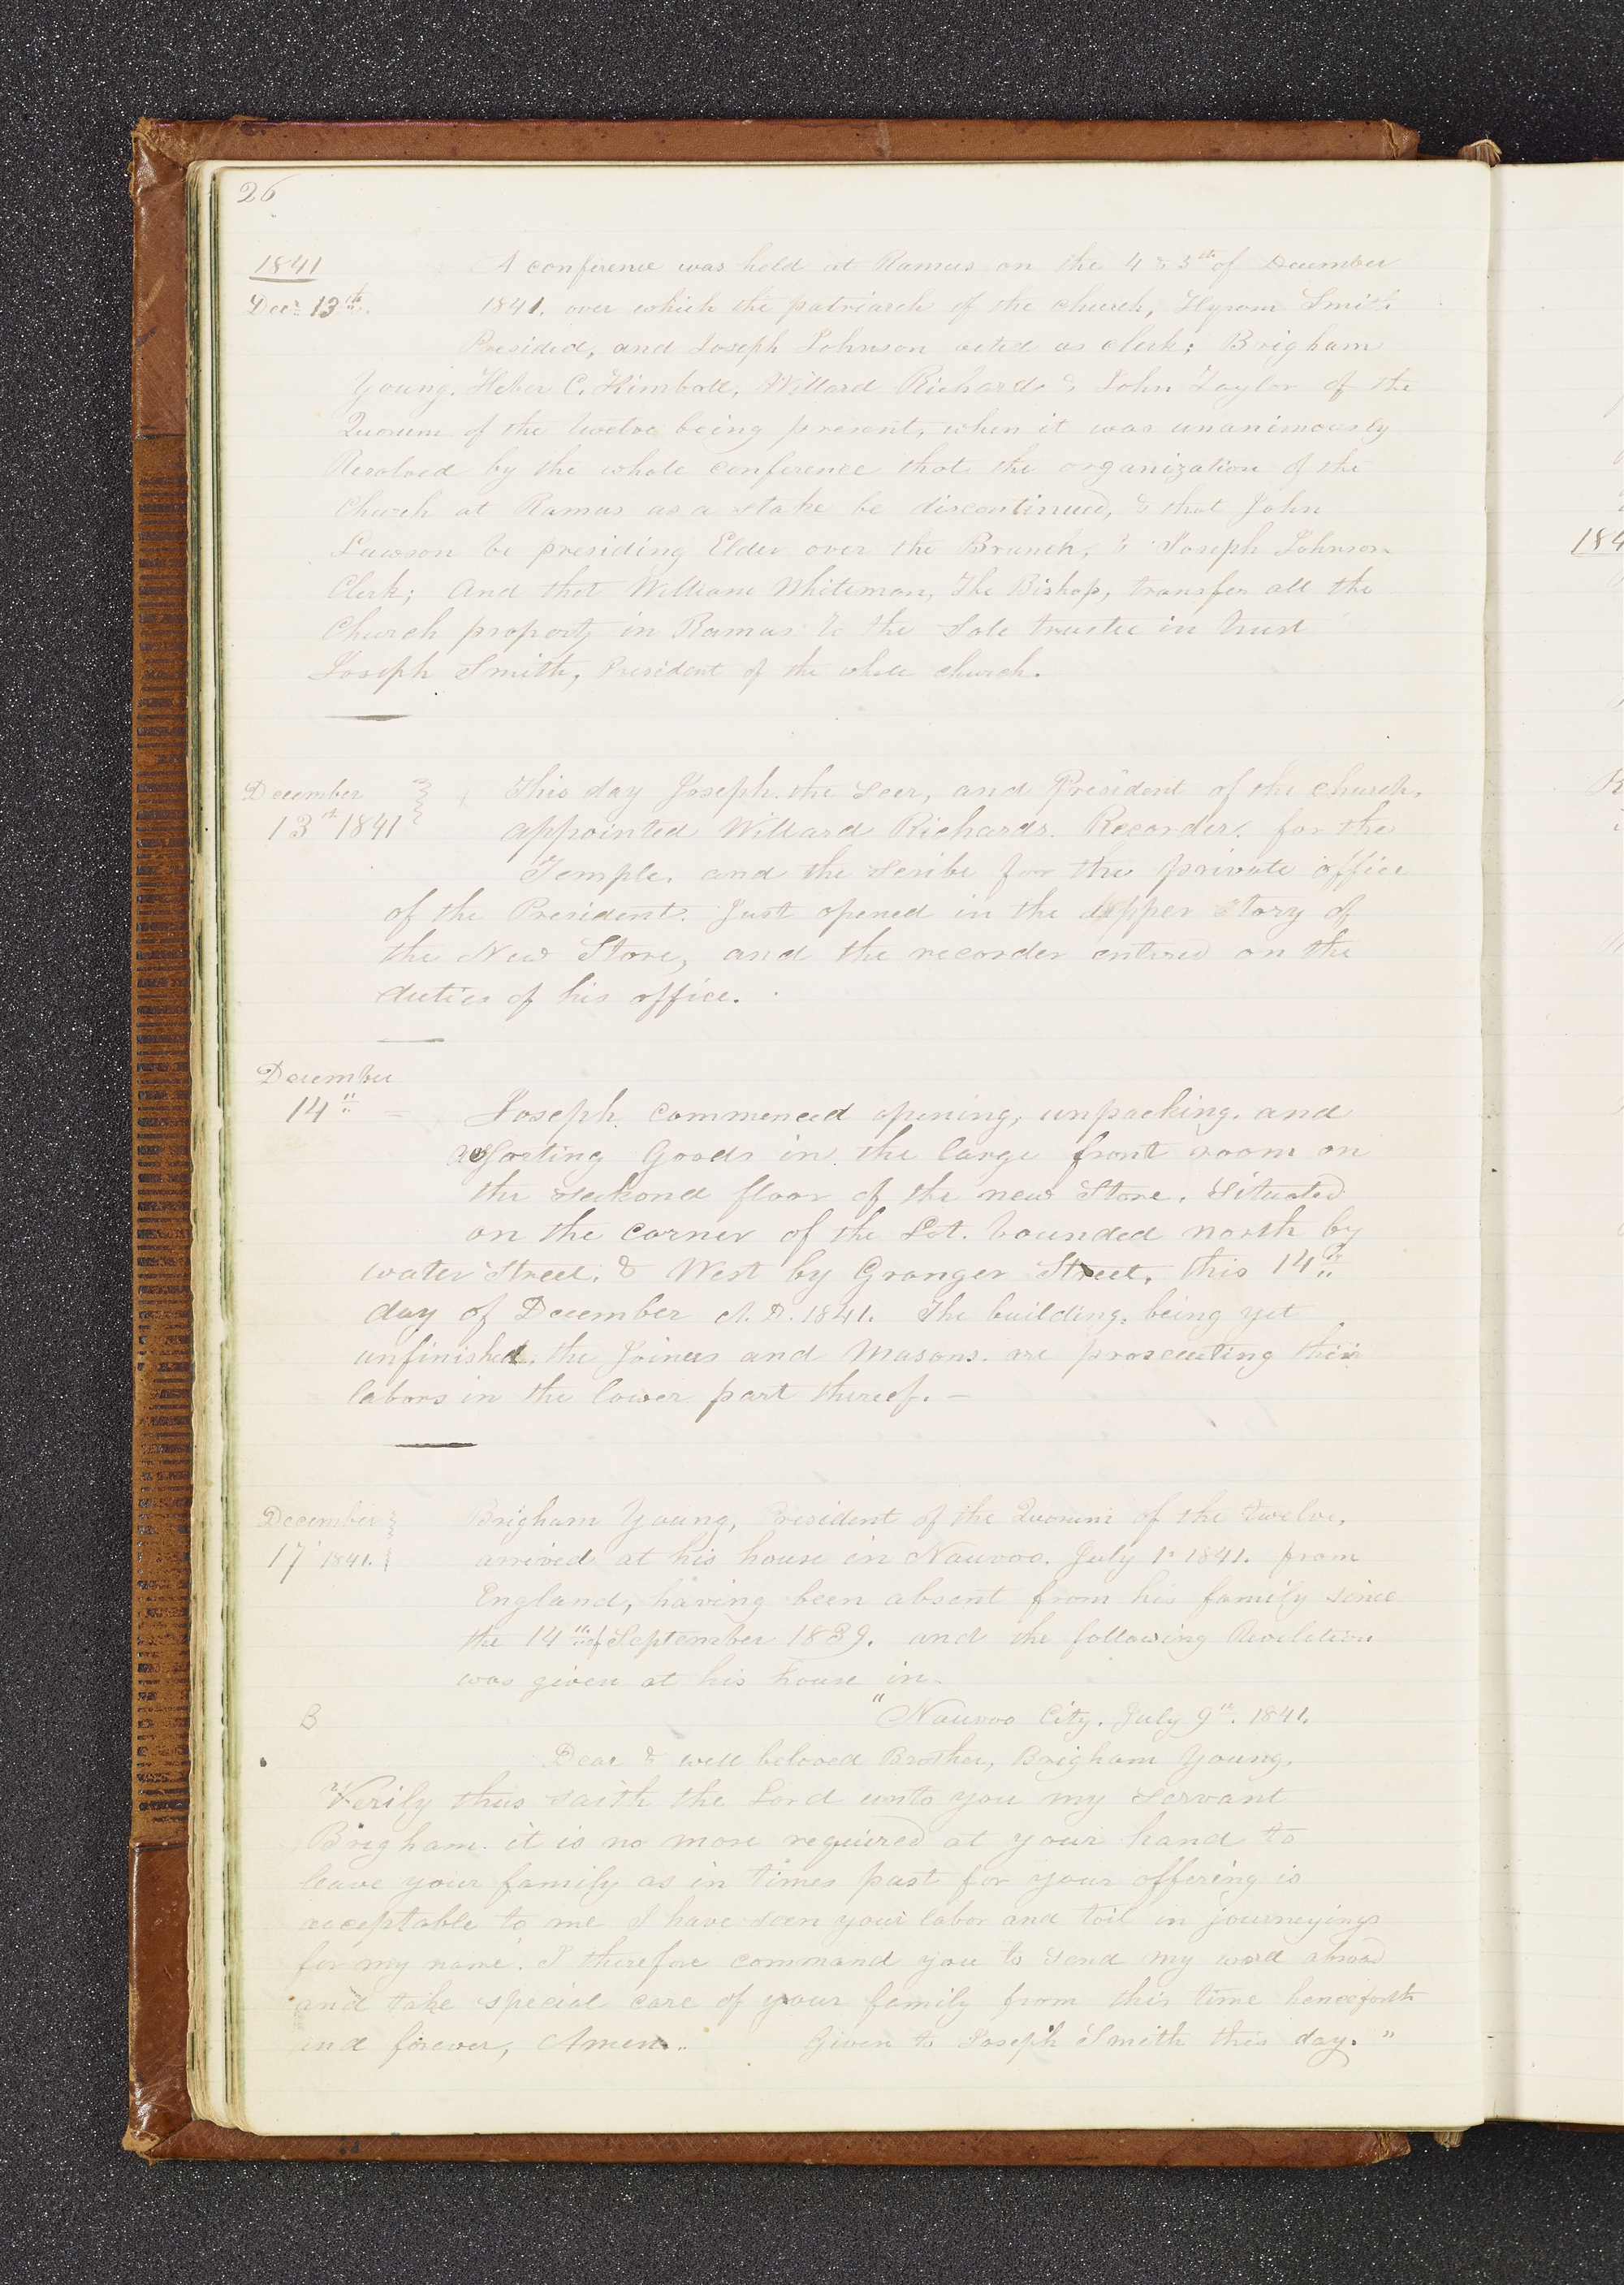 26
1841
Decr. 13th.
A conference was held at Ramus on the 4 & 5th of December
1841. over which the patriarch of the church, Hyrum Smith
Presided, and Joseph Johnson acted as clerk; Brigham
Young. Heber C. Kimball, Willard Richards & John Taylor of the
Quorum of the twelve being present, when it was unanimously
Resolved by the whole conference that the organization of the
Church at Ramus as a Stake be discontinued, & that John
Lawson be presiding Elder over the Branch, & Joseph Johnson
Clerk; And that William Whiteman, The Bishop, transfer all the
Church property in Ramus to the Sole trustee in trust
Joseph Smith, President of the whole church.
December
13th 1841
This day Joseph the Seer, and President of the church,
appointed Willard Richards. Recorder. for the
Temple, and the Scribe for the private office
of the President. Just opened in the Upper Story of
the New Store, and the recorder entered on the
duties of his office.
December
14th =
Joseph commenced opening, unpacking, and
assorting Goods in the large front room on
the seckond floor of the new Store. Situated
on the corner of the Lot. bounded north by
water Street, & West by Granger Street, this 14th
day of December A.D. 1841. The building, being yet
unfinished, the Joiners and Masons. are prosecuting their
labors in the lower part thereof. —
December
17 1841.
Brigham Young, President of the Quorum of the twelve,
arrived at his house in Nauvoo. July 1. 1841. from
England, having been absent from his family since
the 14th of September 1839. and the following Revelation
was given at his house in
B
"Nauvoo City. July 9th. 1841.
Dear & well beloved Brother, Brigham Young,
Verily thus saith the Lord unto you my Servant
Brigham. it is no more required at your hand to
leave your family as in times past for your offering is
acceptable to me I have seen your labor and toil in journeyings
for my name. I therefore command you to send my word abroad
and take special care of your family from this time henceforth
and forever, Amen.. Given to Joseph Smith this day."
184